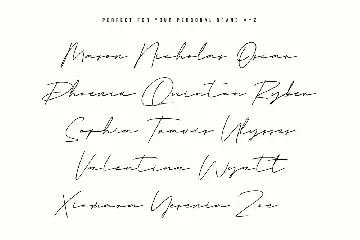 PERFECT FOR YOUR PERSONAL BRAND A-Z
Mason Nicholas Oscar
Phoenix Quintan Ryber
Sophia Travis Ulysses
Valentina Wyatt
Xiomara Yesenia Zoe